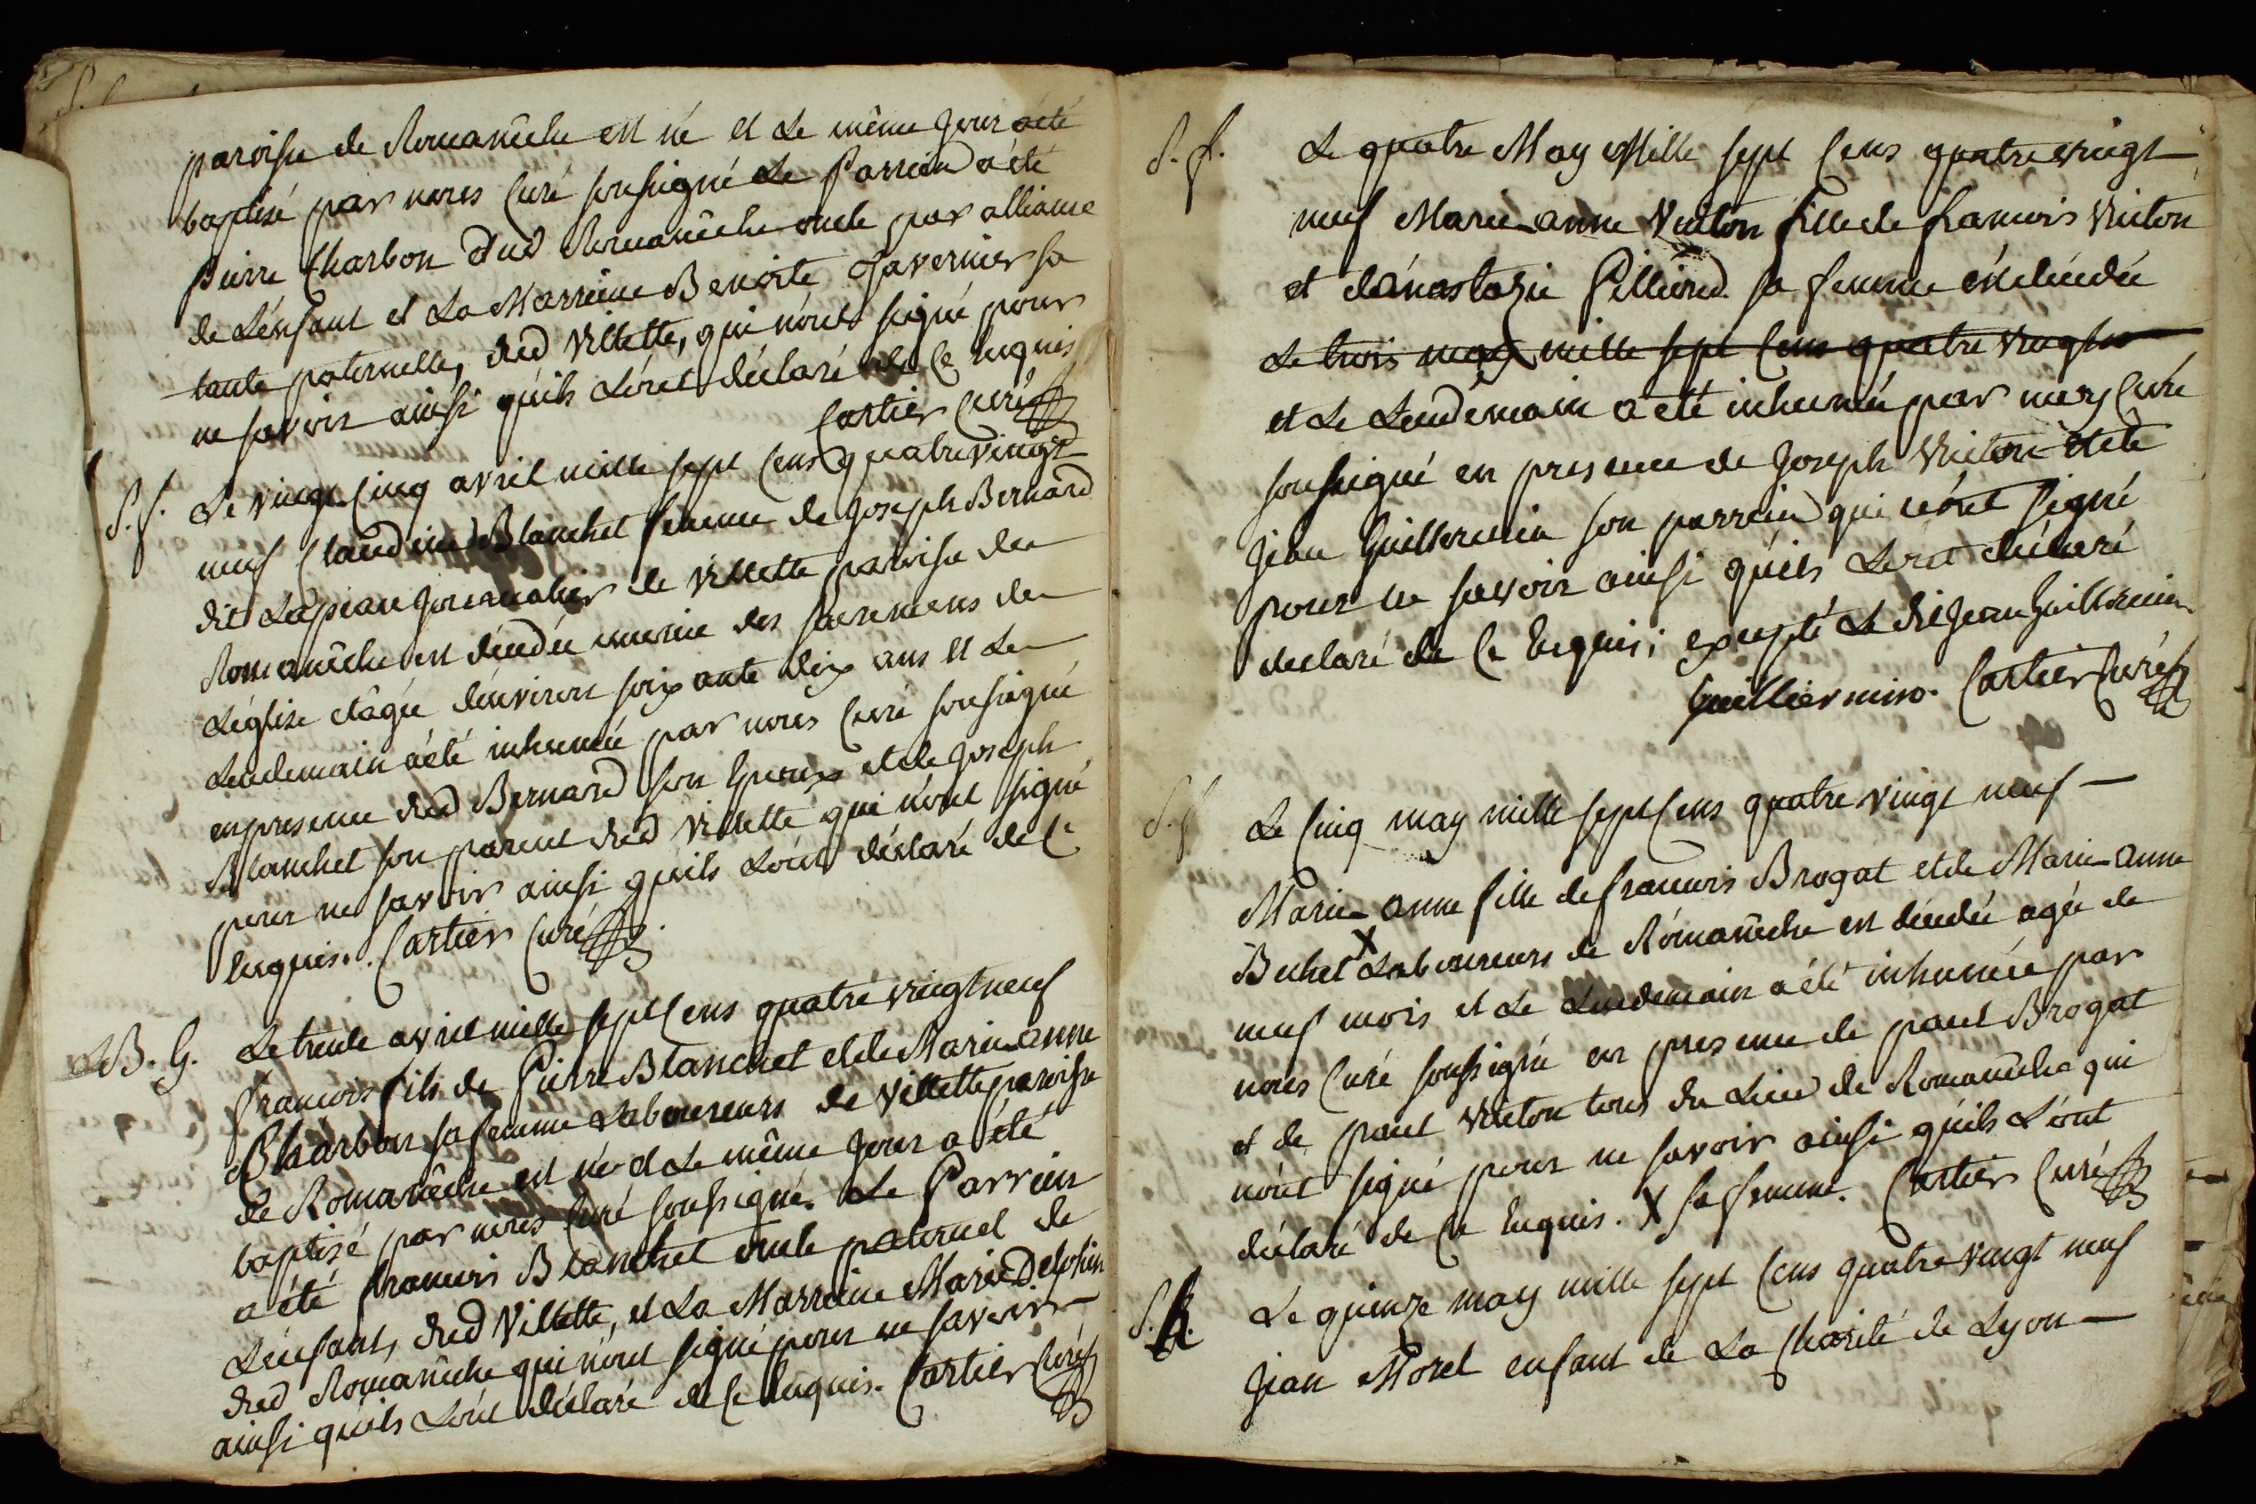 paroisse de Romanêche est né et Le même jour a été
baptisé par nous Curé soussigné Le Parrein a été
Pierre Charbon dud Romanêche oncle par alliance
de L'énfant et La Marreine Benoite Tavernier sa
tante paternelle, dud Villette, qui n'ónt signé pour
ne savoir ainsi qu'ils L'ónt déclaré de Ce Enquis
Cartier Curé
S. f. Le vingt Cinq avril mille sept Cens quatrevingt
neuf Claudine Blanchet femme de Joseph Bernard
dit Journalier de Villette paroisse de
Romanêche est décédée munie des sacremens de
L'églize et âgée d'environ soixante dix ans et Le
Lendemain a été inhumée par nous Curé soussigné
en presence dud Bernard son Epoux et de Joseph
Blanchet son parent dud Villette qui n'ónt signé
pour ne savoir ainsi qu'ils L'ónt déclaré de Ce
Enquis. Cartier Curé
B. G. Le trente avril mille sept Cens quatre vingt neuf
francois fils de Pierre Blanchet et de Marie-anne
Charbon sa femme Laboureurs de Villette paroisse
de Romanêche est né et Le même jour a été
baptisé par nous Curé soussigné. Le Parrein
a été francois Blanchet oncle paternel de
L'énfant, dud Villette, et La Marreine Marie Delphin
dud Romanêche qui n'ónt signé pour ne savoir
ainsi qu'ils L'ónt déclaré de Ce Enquis. Cartier Curé
S. f. Le quatre May Mille sept Cens quatrevingt
neuf Marie-anne Vuiton fille de francois Vuiton
et d'ánastazie Pillierd sa femme ést décédée
Le trois may mille sept Cens quatre vingt
et Le Lendemain a été inhumée par moy Curé
soussigné en presence de Joseph Vuiton et de
Jean Guillermin son parrein qui n'ónt signé
pour ne savoir ainsi qu'ils L'ónt déclaré
declaré de Ce Enquis; excepté Le dit Jean Guillermin
Guilliermin. Cartier Curé
S. f. Le Cinq may mille sept Cens quatre vingt neuf
Marie-anne fille de francois Brogat et de Marie-anne
Buchet X Laboureurs de Rómanêche est décédée agée de
neuf mois et Le Lendemain a été inhumée par
nous Curé soussigné en presence de paul Brogat
et de paul Vuiton tous du Lieu de Romanêche qui
n'ónt signé pour ne savoir ainsi qu'ils L'ónt
déclaré de Ce Enquis. X sa femme. Cartier Curé
S. Le quinze may mille sept Cens quatre vingt neuf
Jean Morel enfant de La Charité de Lyon